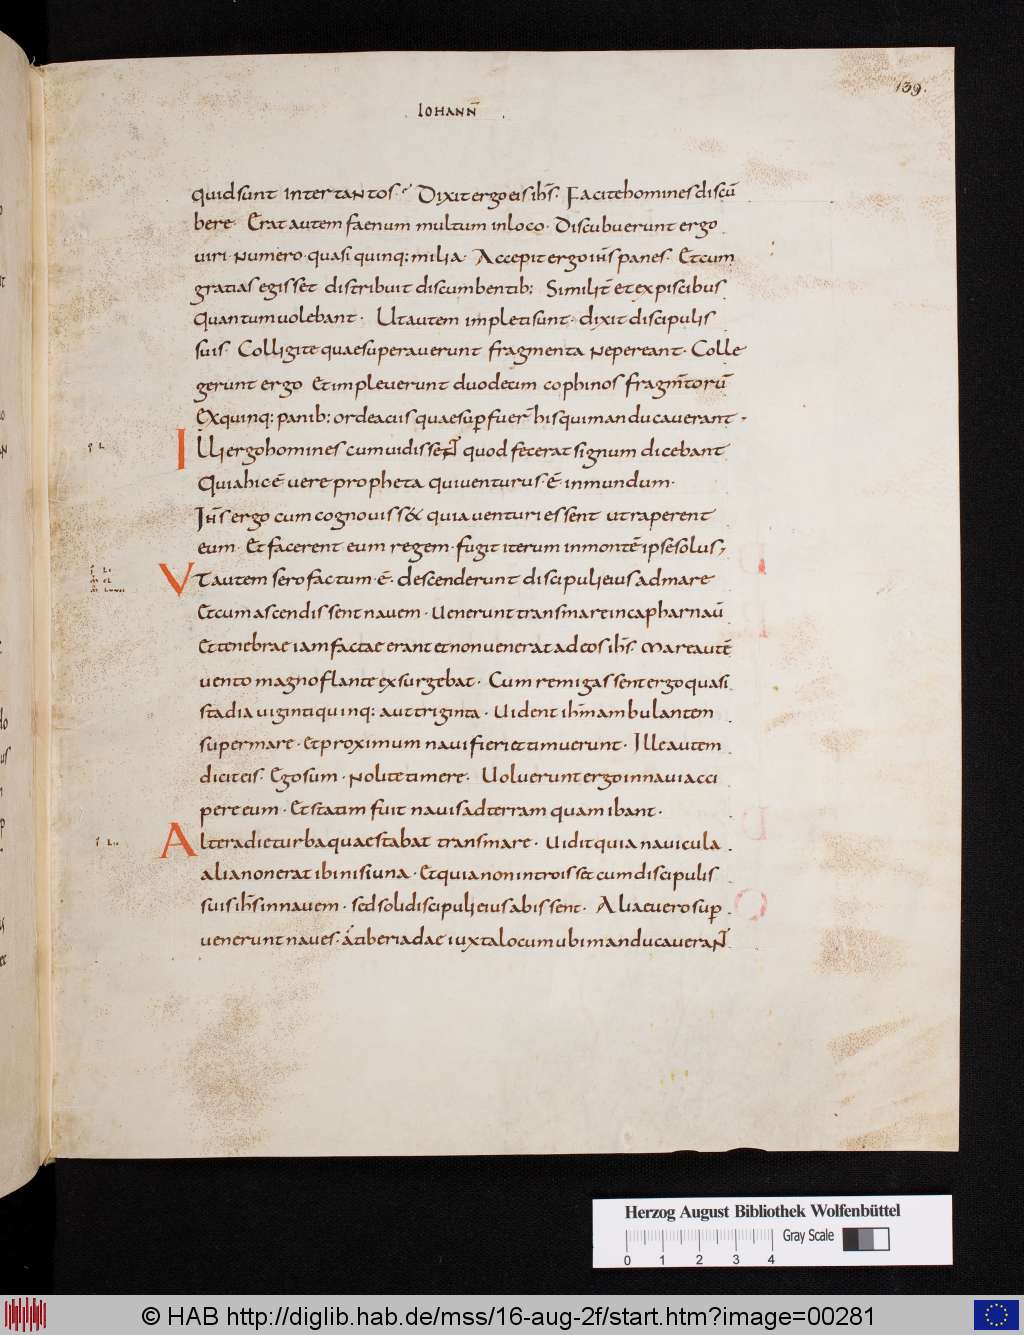 139.
IOHANN̄
quid sunt inter tantos; Dixit ergo eis ih̄s· Facite homines discū
bere· Erat autem faenum multum in loco· Discubuerunt ergo
uiri· Numero· quasi quinq: milia· Accepit ergo ih̄s panes· Et cum
gratias egisset distribuit discumbentib: Similit̄ et ex piscibus
quantum uolebant· Ut autem impleti sunt· dixit discipulis
suis· Colligite quae superauerunt fragmenta ne pereant· Colle
gerunt ergo et impleuerunt duodecim cophinos fragm̄torū
Ex quinq: panib: ordeaciis quae sup̄ fuer̄ his qui manducauerant·
Illi ergo homines cum uidissent quod fecerat signum dicebant
Quia hic ē uere propheta qui uenturus· ē in mundum·
Ih̄s ergo cum cognouisset quia uenturi essent ut raperent
eum· Et facerent eum regem· fugit iterum in montē ipse solus;
Ut autem sero factum· ē· descenderunt discipuli eius ad mare
Et cum ascendissent nauem· Uenerunt trans mare in capharnaū
Et tenebrae iam factae erant et non uenerat ad eos ih̄s· Mare autē
uento magno flante exsurgebat· Cum remigassent ergo quasi
stadia uiginti quinq: aut triginta· Uident ih̄m ambulantem
super mare· et proximum naui fieri et timuerunt· Ille autem
dicit eis· Ego sum· Nolite timere· Uoluerunt ergo in naui acci
pere eum· Et statim fuit nauis ad terram quam ibant·
Altera die turba quae stabat trans mare· Uidit quia nauicula
alia non erat ibi nisi una· Et quia non introisset cum discipulis
suis ih̄s in nauem· sed soli discipuli eius abissent· Aliae uero sup̄
uenerunt naues· a tiberiadae iuxta locum ubi manducauerant
Herzog August Bibliothek Wolfenbüttel
Gray Scale
0 1 2 3 4
© HAB http://diglib.hab.de/mss/16-aug-2f/start.htm?image=00281